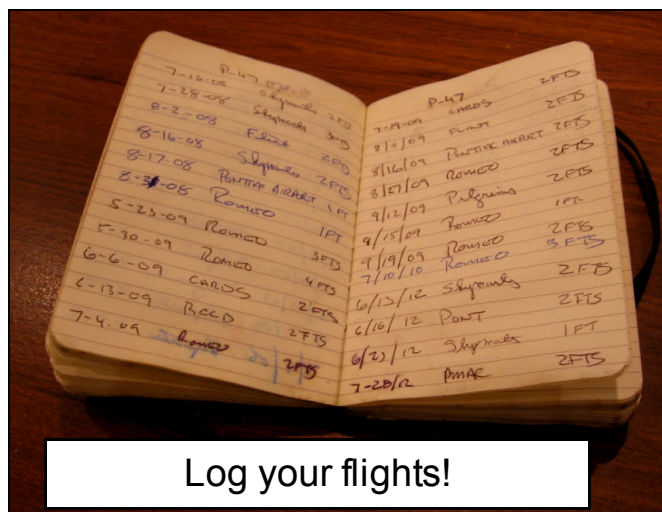 P-47
7-16-08 2 FTS
7-28-08 3 FTS
8-2-08 Flint 2FTS
8-16-08 2FTS
8-17-08 PONTIAC AIRPORT 1 FT
8-31-08 ROMEO 1FT
5-23-09 ROMEO 3FTS
5-30-09 ROMEO 4FTS
6-6-09 CARDS 2FTS
6-13-09 2FTS
7-4-09 Romeo 2FTS
P-47
7-19-09 CARDS 2FTS
FLINT 2FTS
8/16/09 PONTIAC AIRPORT 2FTS
8/27/09 ROMEO 2FTS
9/12/09 Pilgrims 2FTS
9/15/09 Romeo 1FT
9/19/09 ROMEO 2FTS
7/10/10 ROMEO 3FTS
6/13/12 2FTS
6/16/12 PONT 2FTS
6/23/12 1FT
7-28/12 2FTS
Log your flights!